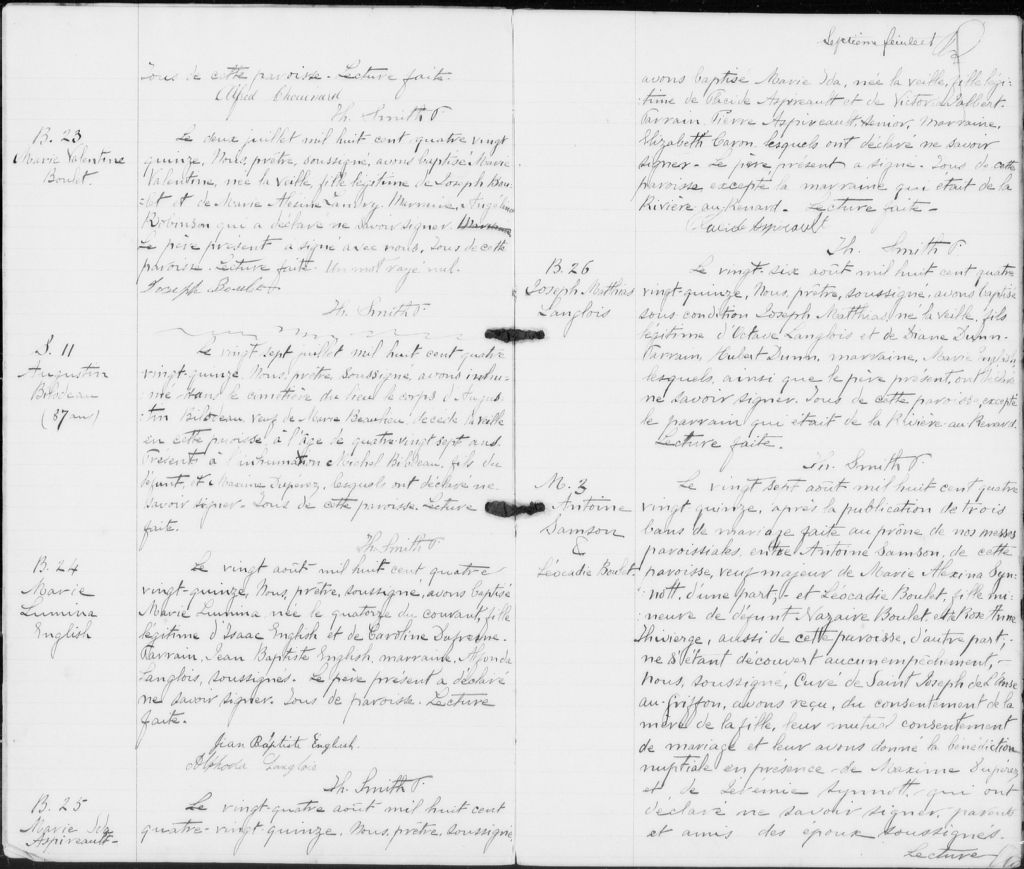 tous de cette paroisse. Lecture faite.
Alfred Chouinard
Th. Smith P.
B. 23
Marie Valentine
Boulet.
Le deux juillet mil huit cent quatre vingt
quinze, Nous, prêtre, soussigné, avons baptisé Marie
Valentine, née la veille, fille légitime de Joseph Bou-
-let et de Marie Alesine Landry. Marraine, Angelina
Robinson qui a déclaré ne savoir signer.
Le père présent a signé avec nous. Tous de cette
paroisse. Lecture faite. Un mot rayé nul.
Joseph Boulet
Th. Smith P.
S. 11
Augustin
Bilodeau
(87 ans)
Le vingt-sept juillet mil huit cent quatre
vingt-quinze, Nous, prêtre, soussigné, avons inhu-
mé dans le cimetière du lieu le corps d'Augus-
-tin Bilodeau, veuf de Marie Beaulieu, décédé la veille
en cette paroisse à l'âge de quatre-vingt sept ans.
Présents à l'inhumation Michel Bilodeau, fils du
défunt, et Maxime Duperez, lesquels ont déclaré ne
savoir signer. Tous de cette paroisse. Lecture
faite.
Th. Smith P.
B. 24
Marie
Lumina
English
Le vingt août mil huit cent quatre
vingt-quinze, Nous, prêtre, soussigné, avons baptisé
Marie Lumina née le quatorze du courant, fille
légitime d'Isaac English et de Caroline Dufresne.
Parrain, Jean Baptiste English, marraine, Alfonda
Langlois, soussignés. Le père présent a déclaré
ne savoir signer. Tous de paroisse. Lecture
faite.
Jean Baptiste English
Langlois
Th. Smith P.
B. 25
Marie Ida
Aspireault-
Le vingt-quatre août mil huit cent
quatre-vingt-quinze, Nous, prêtre, soussigné
Septième feuillet
avons baptisé Marie Ida, née la veille, fille légi-
time de Placide Aspireault et de Victoria Jalbert.
Parrain, Pierre Aspireault, senior, marraine,
Elizabeth Caron lesquels ont déclaré ne savoir
signer. Le père présent a signé. Tous de cette
paroisse excepté la marraine qui était de la
Rivière au Renard. Lecture faite.
Th. Smith P.
B. 26
Joseph Matthias
Langlois
Le vingt-six août mil huit cent quatre
vingt-quinze, Nous, prêtre, soussigné, avons baptisé
sous condition Joseph Matthias, né la veille, fils
légitime d'Octave Langlois et de Diane Dunn.
Parrain, Hubert Dunn, marraine, Marie English,
lesquels, ainsi que le père présent, ont déclaré
ne savoir signer. Tous de cette paroisse, excepté
le parrain qui était de la Rivière-au-Renard.
Lecture faite.
Th. Smith P.
M. 3
Antoine
Samson
&
Léocadie Boulet.
Le vingt sept août mil huit cent quatre
vingt quinze, après la publication de trois
bans de mariage faite au prône de nos messes
paroissiales entre Antoine Samson, de cette
paroisse, veuf majeur de Marie Alexina Syn-
-nott, d'une part, et Léocadie Boulet, fille mi-
neure de défunt Nazaire Boulet et de Rose Anne
Thivierge, aussi de cette paroisse, d'autre part,
ne s'étant découvert aucun empêchement,
Nous, soussigné, Curé de Saint Joseph de l'Anse
au-Griffon, avons reçu, du consentement de la
mère de la fille, leur mutuel consentement
de mariage et leur avons donné la bénédiction
nuptiale en présence de Maxime Dupérez
et de Jérémie Synnott, qui ont
déclaré ne savoir signer, parents
et amis des époux soussignés.
Lecture